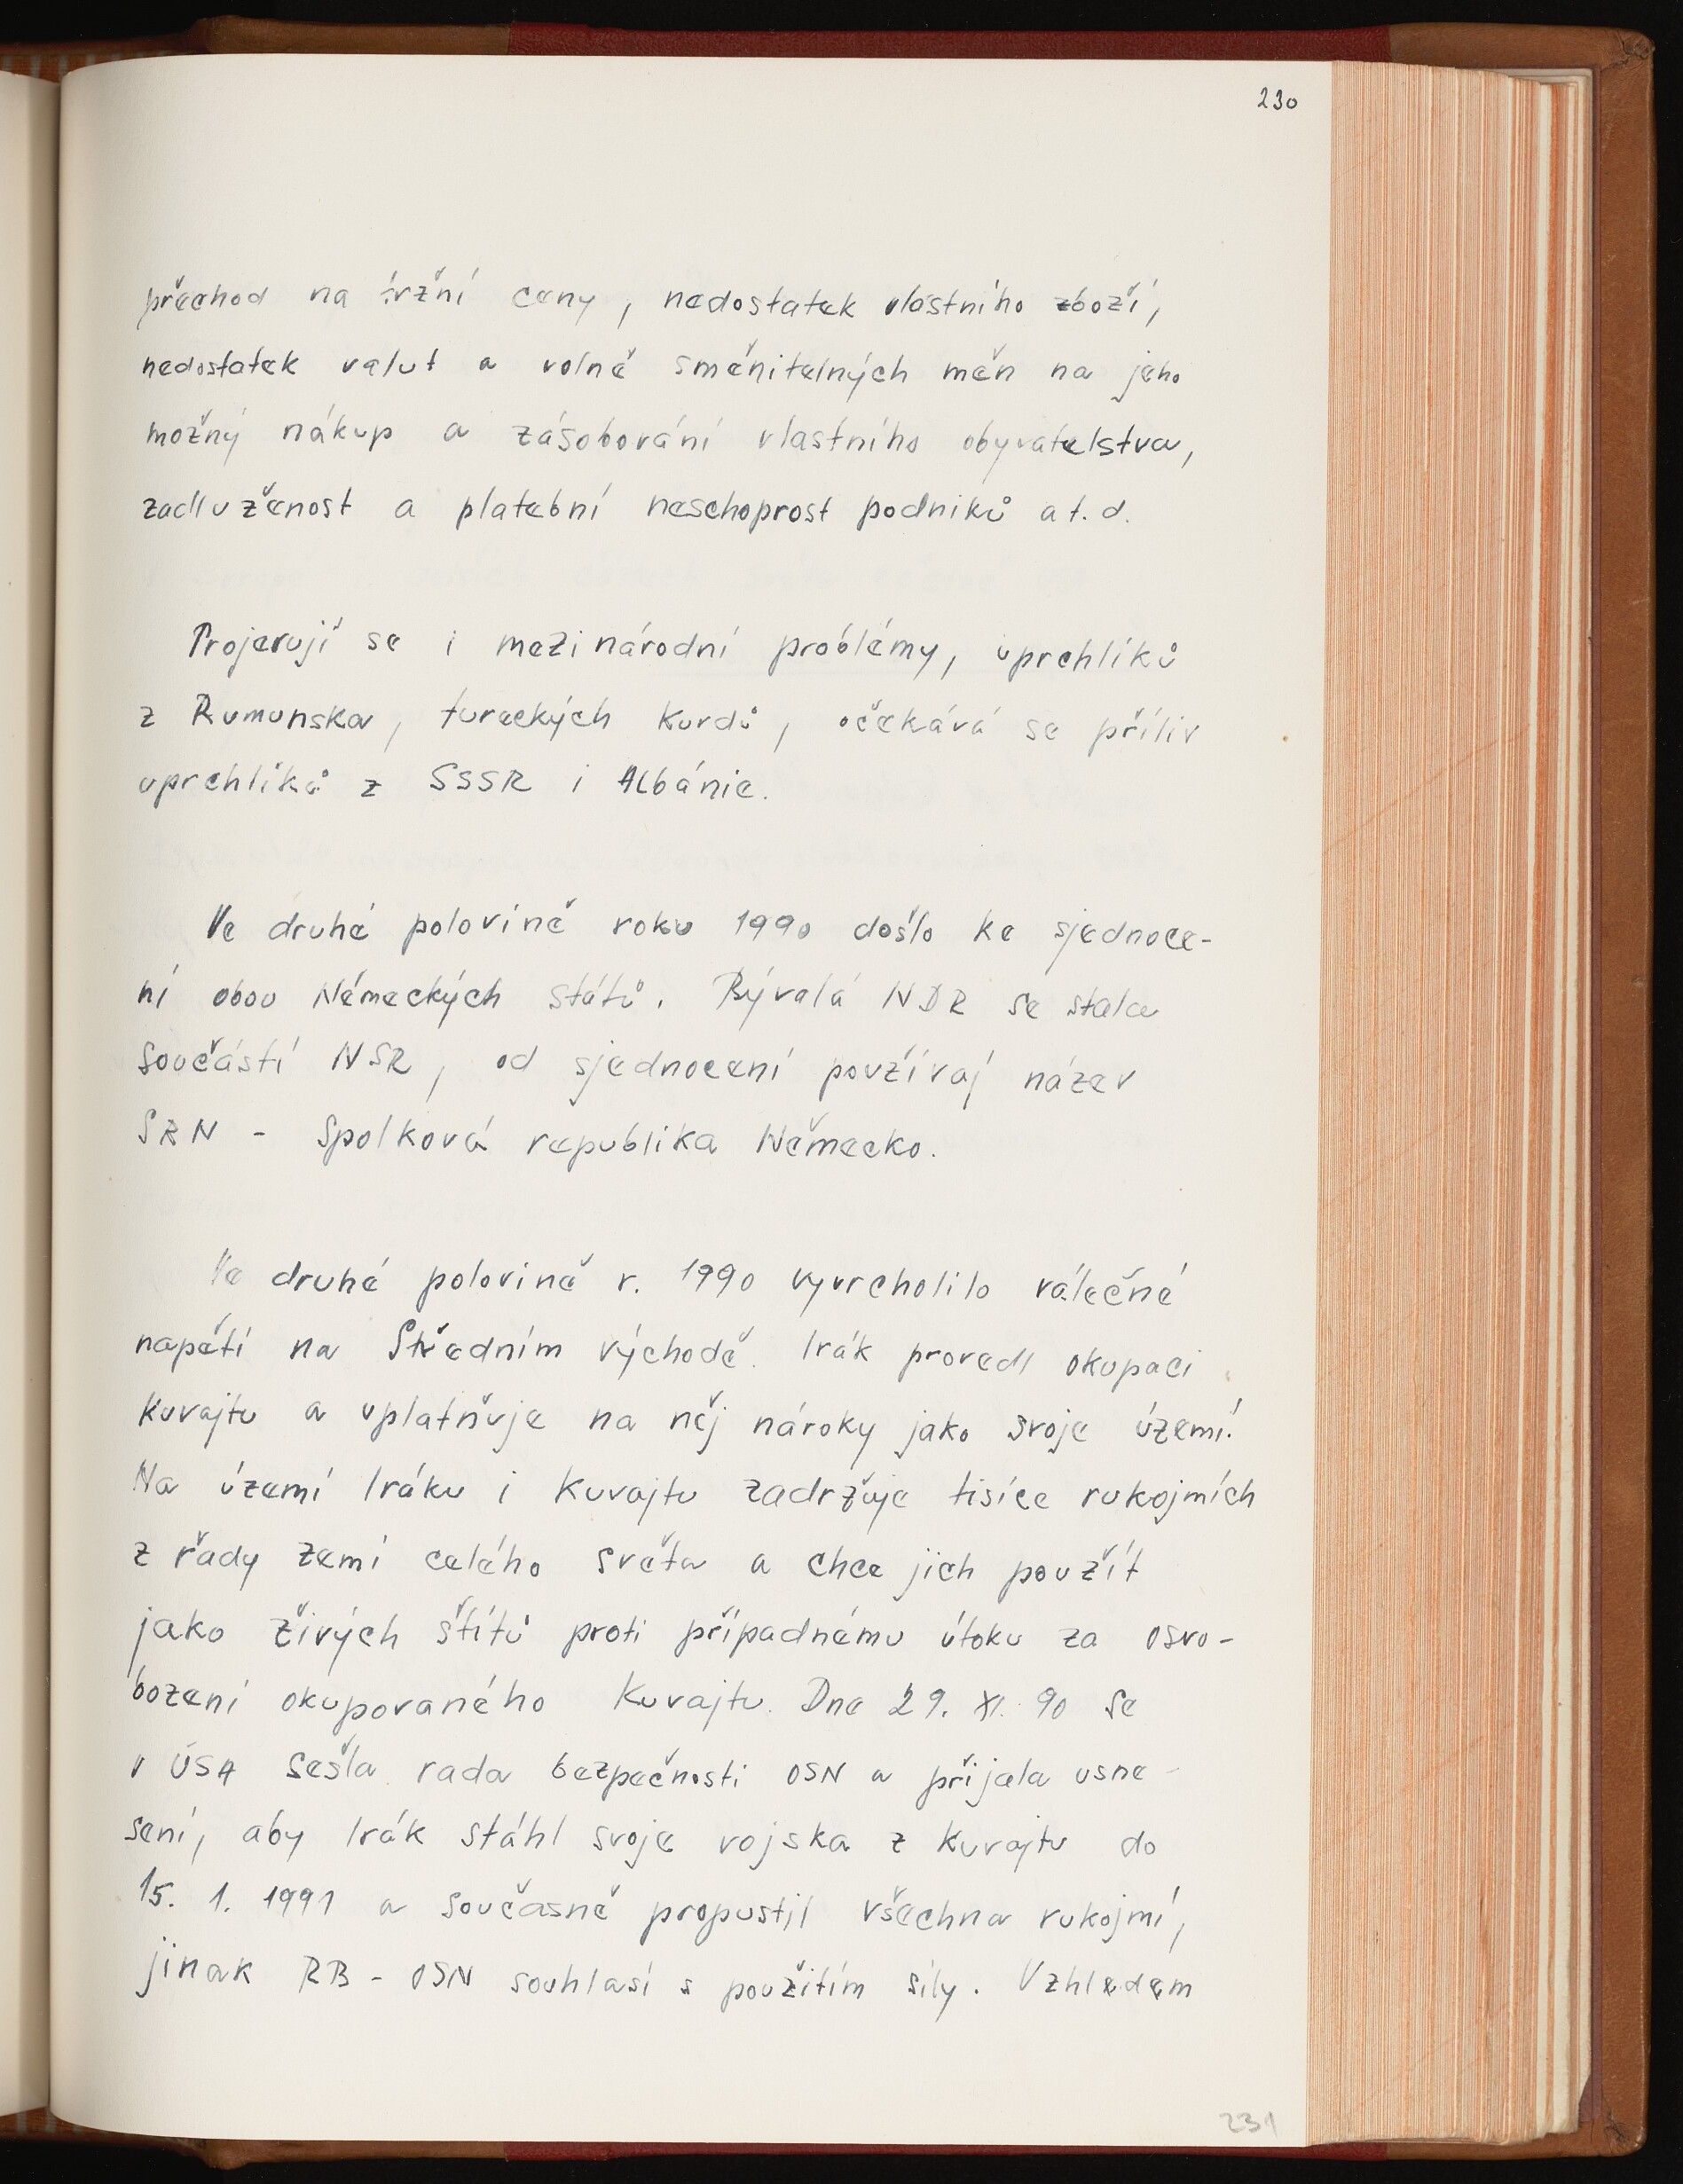 230
přechod na tržní ceny, nedostatek vlastního zboží,
nedostatek valut a volně směnitelných měn na jeho
možný nákup a zásobování vlastního obyvatelstva,
zadluženost a platební neschopnost podniků a t. d.
Projevují se i mezinárodní problémy, uprchlíků
z Rumunska, tureckých Kurdů, očekává se příliv
uprchlíků z SSSR i Albánie.
Ve druhé polovině roku 1990 došlo ke sjednoce-
ní obou Německých států. Bývalá NDR se stala
součástí NSR, od sjednocení používaj název
SRN - Spolková republika Německo.
Ve druhé polovině r. 1990 vyvrcholilo válečné
napětí na Středním východě. Irák provedl okupaci
Kuvajtu a uplatňuje na něj nároky jako svoje území.
Na území Iráku i Kuvajtu zadržuje tisíce rukojmích
z řady zemí celého světa a chce jich použít
jako živých štítů proti případnému útoku za osvo-
bození okupovaného Kuvajtu. Dne 29. XI. 90 se
v USA sešla rada bezpečnosti OSN a přijala usne-
sení, aby Irák stáhl svoje vojska z Kuvajtu do
15. 1. 1991 a současně propustil všechna rukojmí,
jinak RB - OSN souhlasí s použitím síly. Vzhledem
231